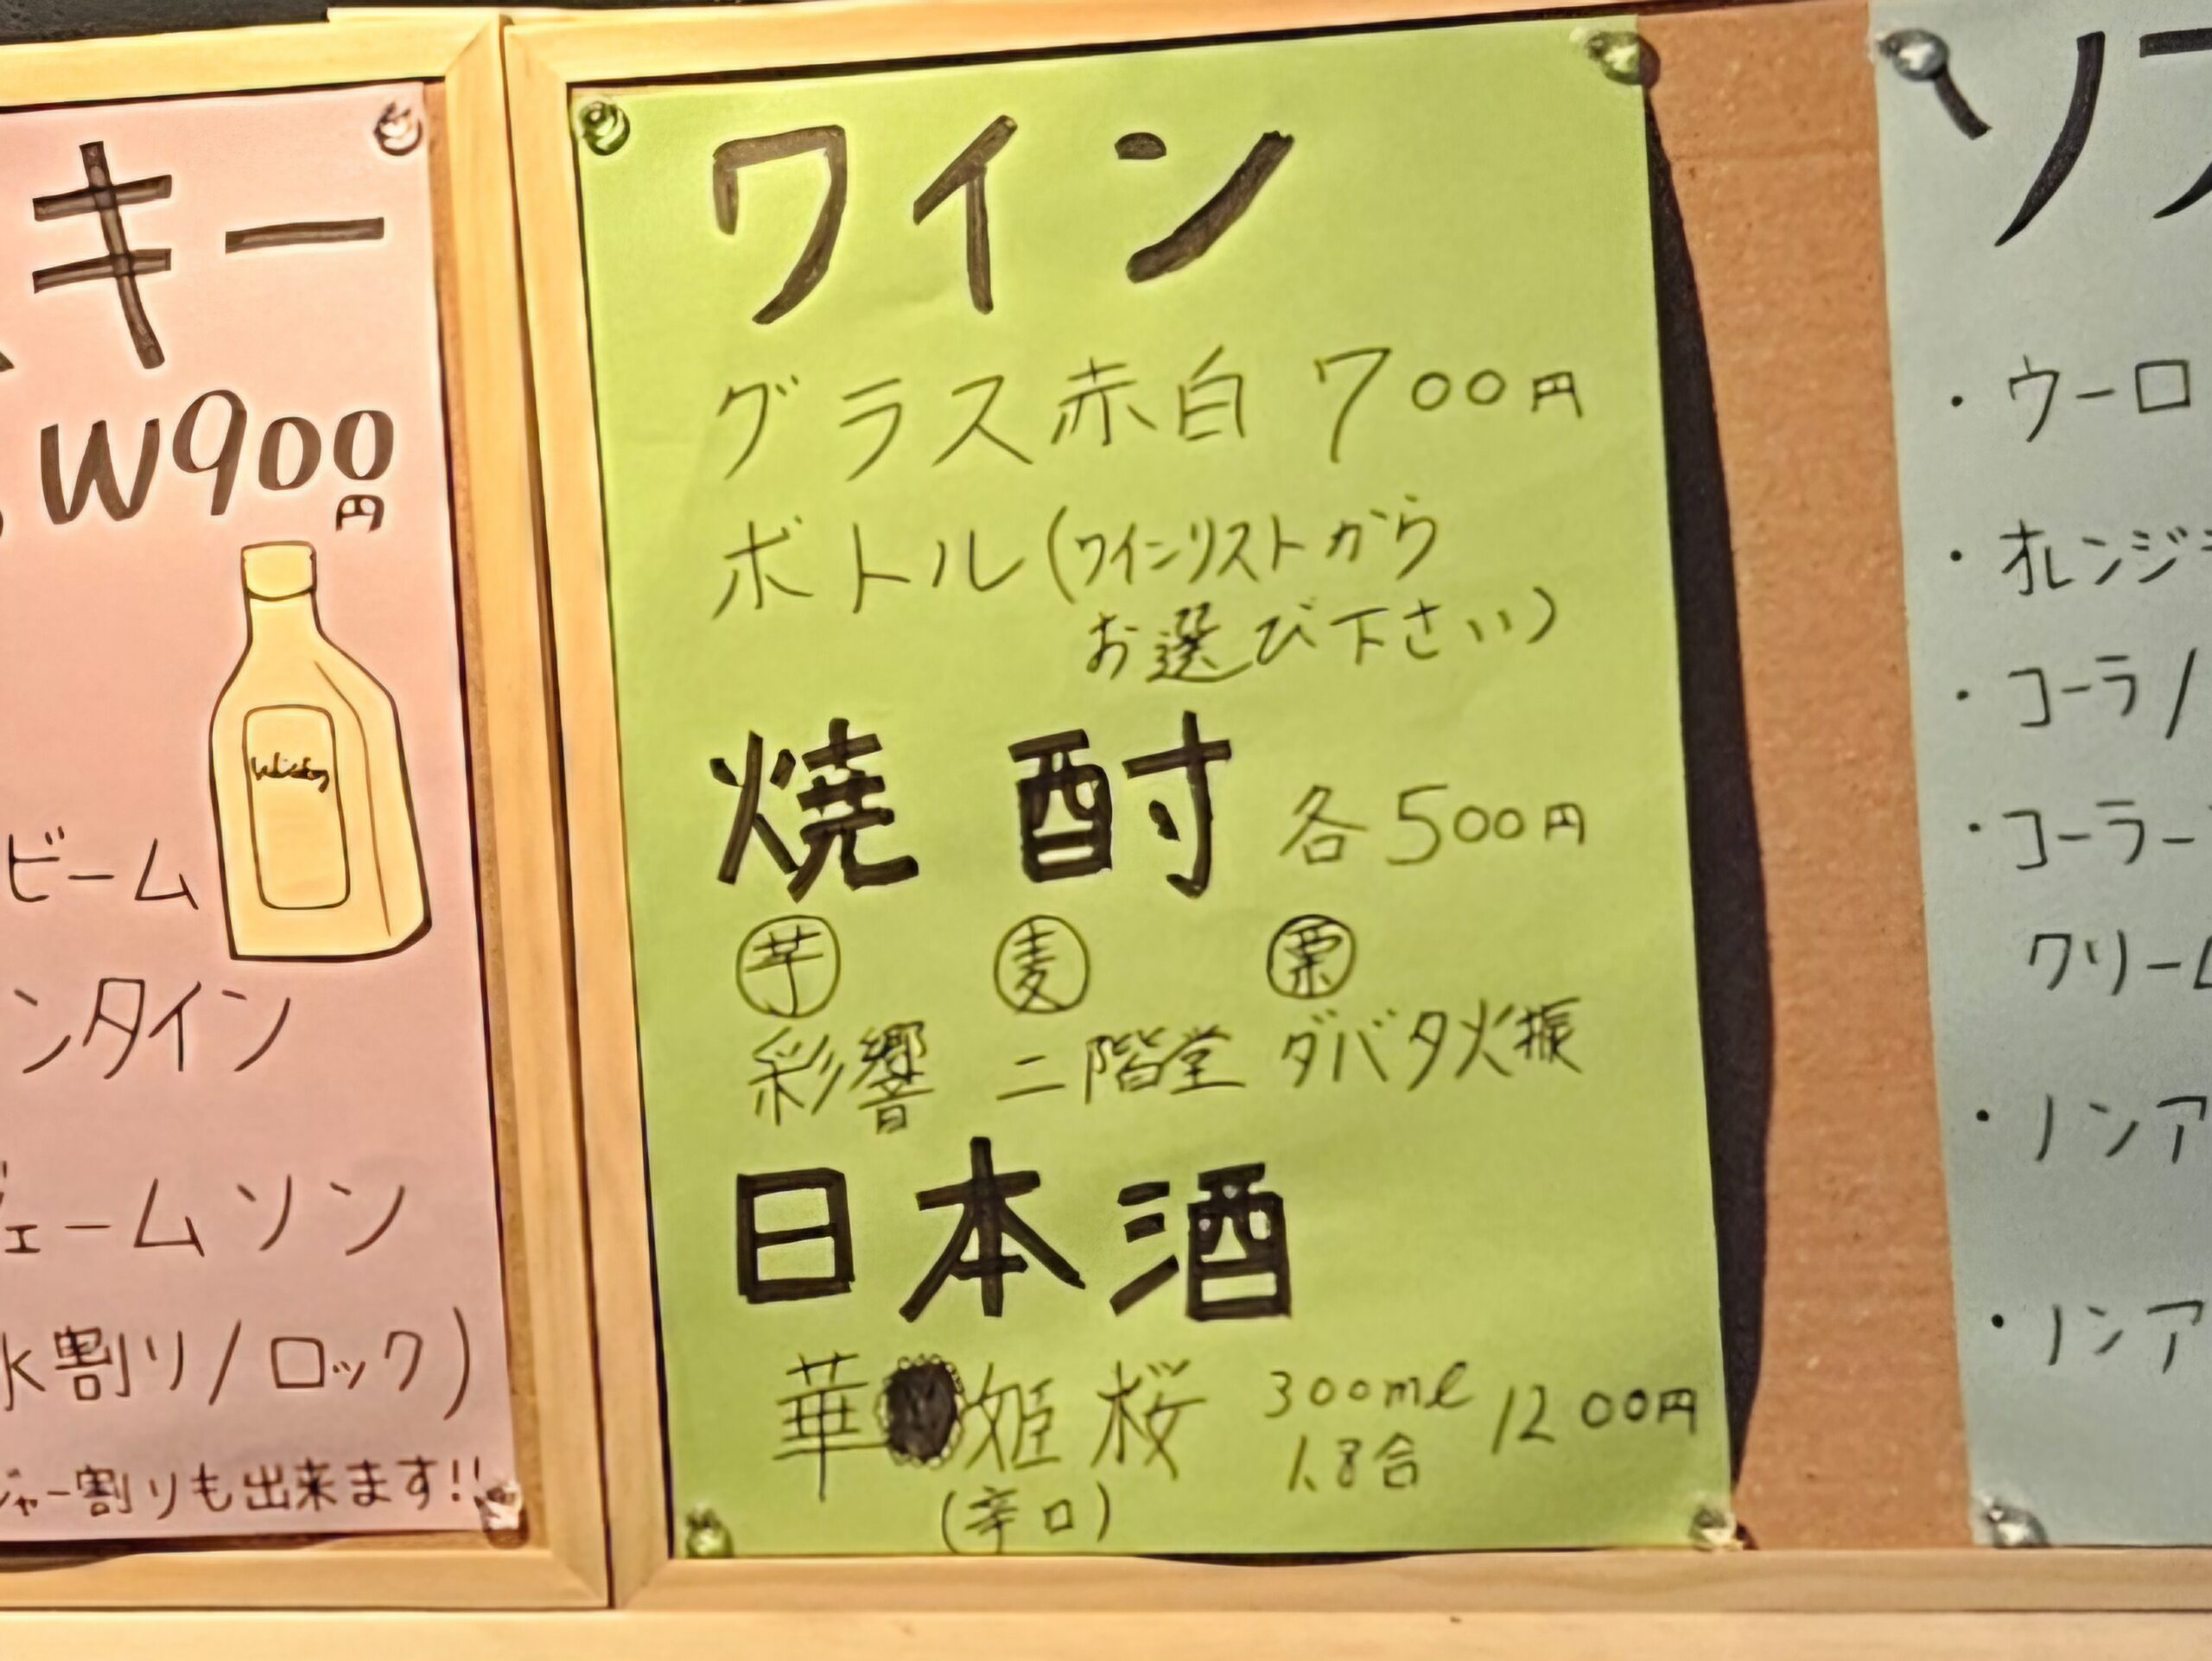 キー
W900円
Whisky
ビーム
ンタイン
ェームソン
水割り/ロック)
ジャー割りも出来ます!!
ワイン
グラス赤白 700円
ボトル(ワインリストから
お選び下さい)
焼酎 各500円
芋 麦 栗
彩響 二階堂 ダバダ火振
日本酒
華姫桜 300ml 1200円
1.8合
(辛口)
ソフ
・ウーロ
・オレンジ
・コーラ/
・コーラー
クリーム
・ノンア
・ノンア